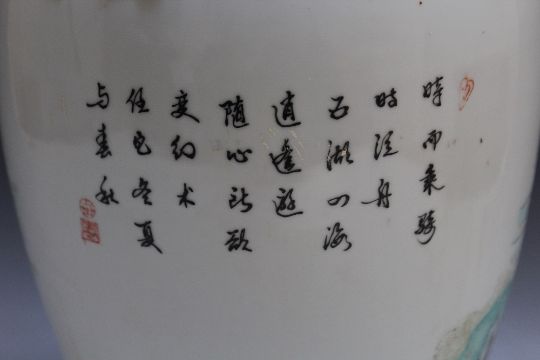 時而乘騎
時泛舟
五湖四海
逍遙遊
随心所欲
变幻术
任它冬夏
与春秋